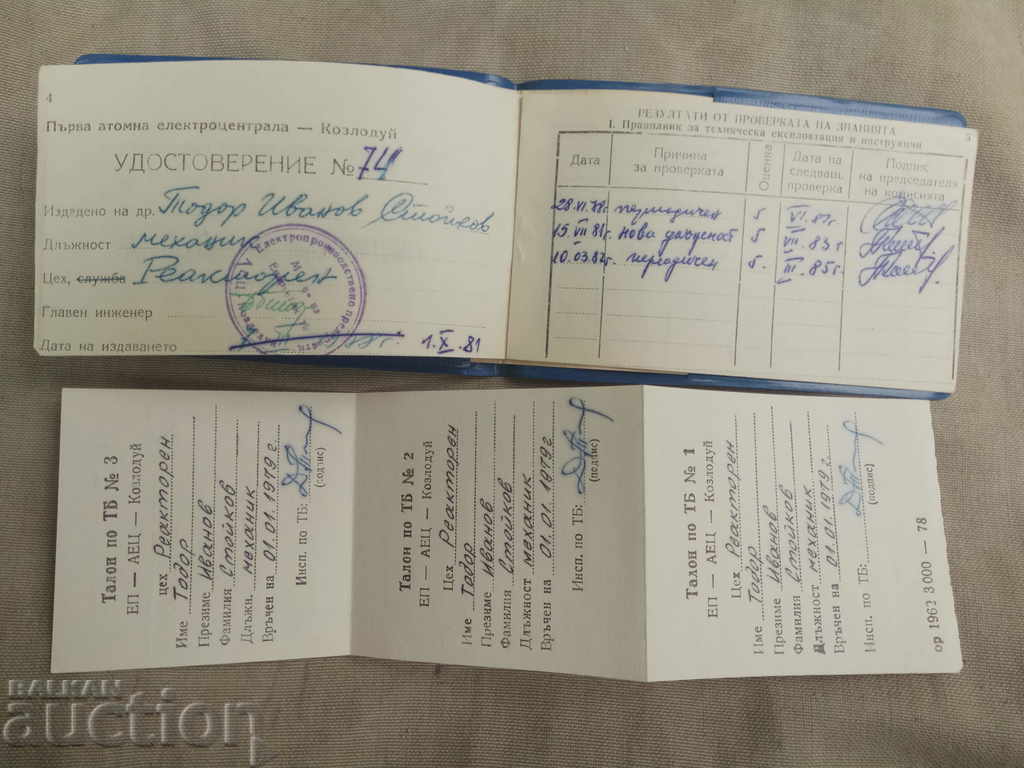 4
Първа атомна електроцентрала — Козлодуй
УДОСТОВЕРЕНИЕ № 74
Издадено на др. Тодор Иванов Стойков
Длъжност механик
Цех, служба Реакторен
Главен инженер
Дата на издаването 1.X.81
5
РЕЗУЛТАТИ ОТ ПРОВЕРКАТА НА ЗНАНИЯТА
I. Правилник за техническа експлоатация и инструкции
Дата Причина за проверката Оценка Дата на следващ. проверка Подпис на председателя на комисията
периодичен 5 VI.81г
15 VII 81г. нова длъжност 5 VII.83г
10.03.82г. периодичен 5. III.85г
Талон по ТБ № 3
ЕП — АЕЦ — Козлодуй
цех Реакторен
Име Тодор
Презиме Иванов
Фамилия Стойков
Длъжн. механик
Връчен на 01.01.1979 г.
Инсп. по ТБ:
(подпис)
Талон по ТБ № 2
ЕП — АЕЦ — Козлодуй
Цех Реакторен
Име Тодор
Презиме Иванов
Фамилия Стойков
Длъжност механик
Връчен на 01.01.1979 г
Инсп. по ТБ:
(подпис)
Талон по ТБ № 1
ЕП — АЕЦ — Козлодуй
Цех Реакторен
Име Тодор
Презиме Иванов
Фамилия Стойков
Длъжност механик
Връчен на 01.01.1979 г
Инсп. по ТБ:
(подпис)
ор 1962 3000 — 78
BALKAN
auction